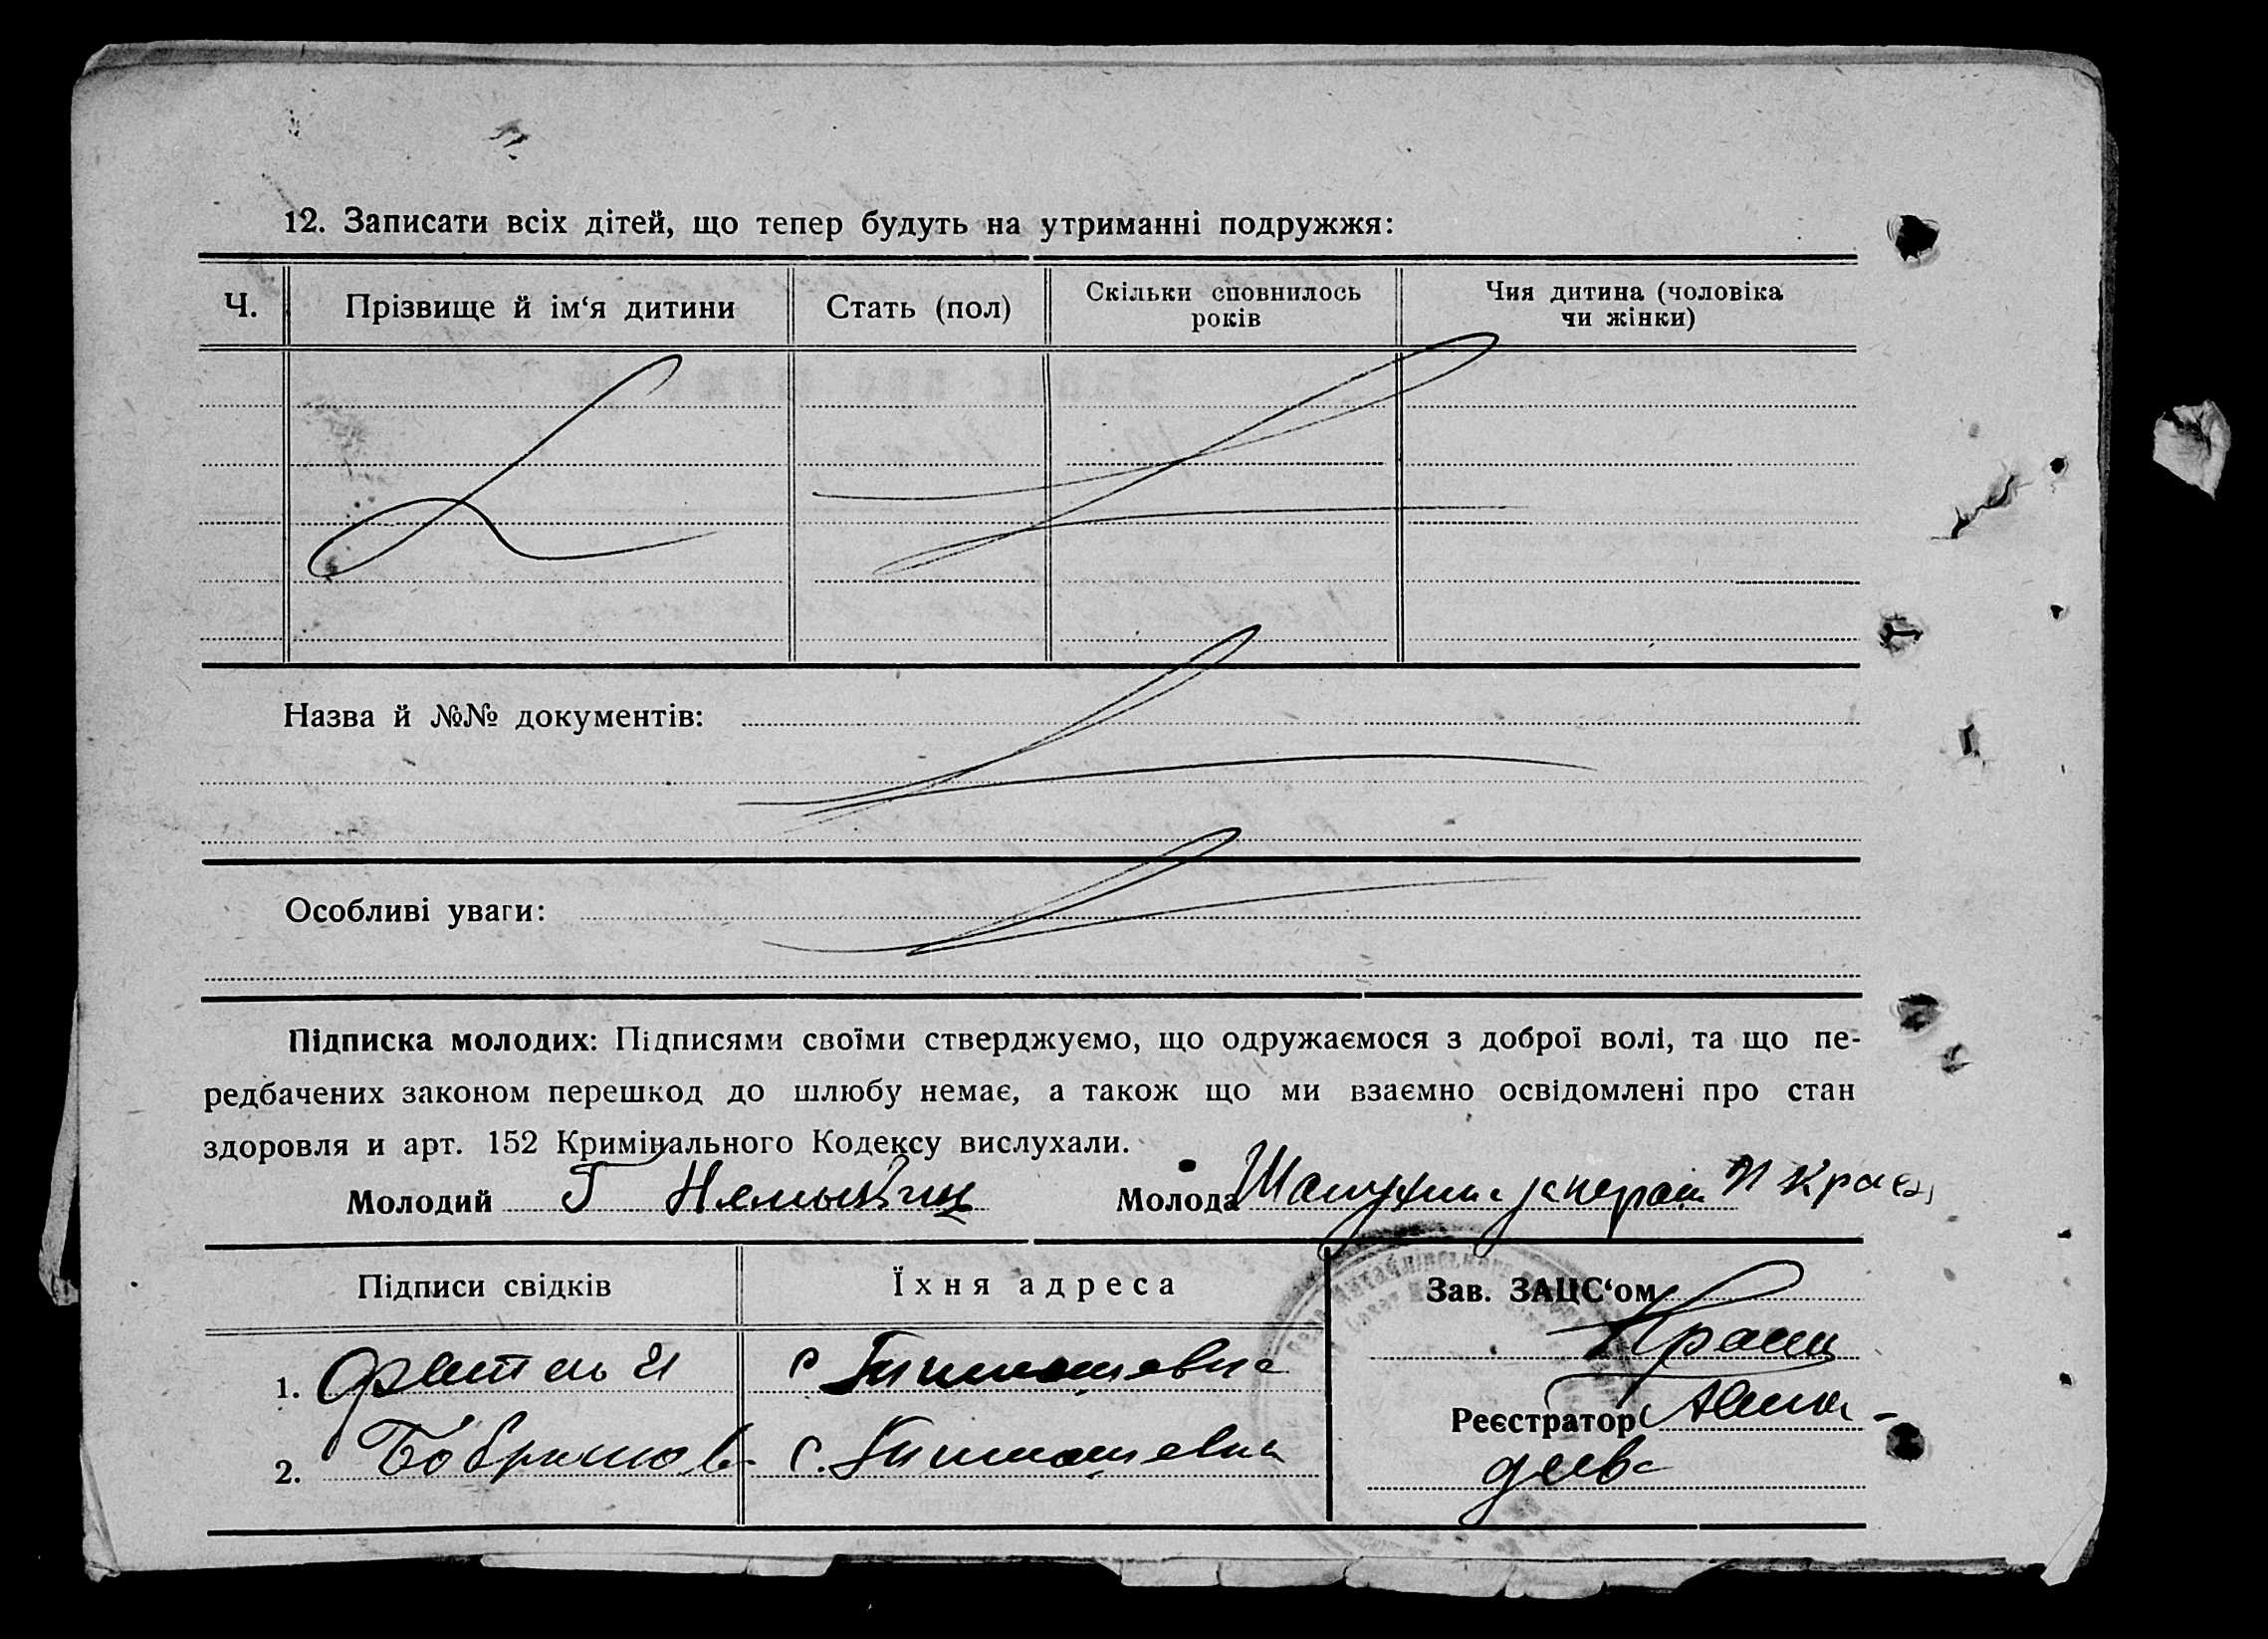 12. Записати всіх дітей, що тепер будуть на утриманні подружжя:
Ч. Прізвище й ім‘я дитини Стать (пол) Скільки сповнилось років Чия дитина (чоловіка чи жінки)
Назва й №№ документів:
Особливі уваги:
Підписка молодих: Підписями своїми стверджуємо, що одружаємося з доброї волі, та що пе-
редбачених законом перешкод до шлюбу немає, а також що ми взаємно освідомлені про стан
здоровля и арт. 152 Кримінального Кодексу вислухали.
Молодий Г Молода
Підписи свідків Їхня адреса Зав. ЗАЦС‘ом
1. с Тимошевка
Реєстратор
2. с. Тимошевка